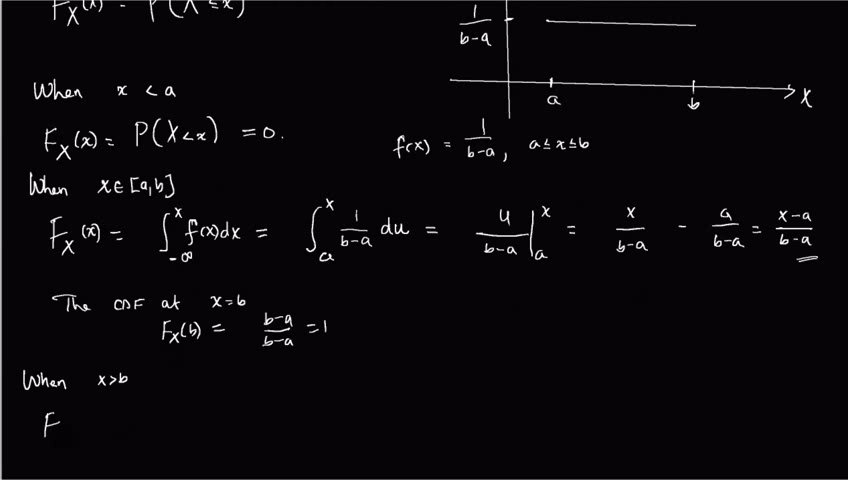 F_X(x) = P(X ≤ x)
1/(b-a)
a b X
When x < a
F_X(x) = P(X < x) = 0.
f(x) = 1/(b-a), a ≤ x ≤ b
When x ∈ [a,b]
F_X(x) = ∫_{-∞}^{x} f(x)dx = ∫_{a}^{x} 1/(b-a) du = u/(b-a) |_{a}^{x} = x/(b-a) - a/(b-a) = (x-a)/(b-a)
The CDF at x=b
F_X(b) = (b-a)/(b-a) = 1
When x>b
F